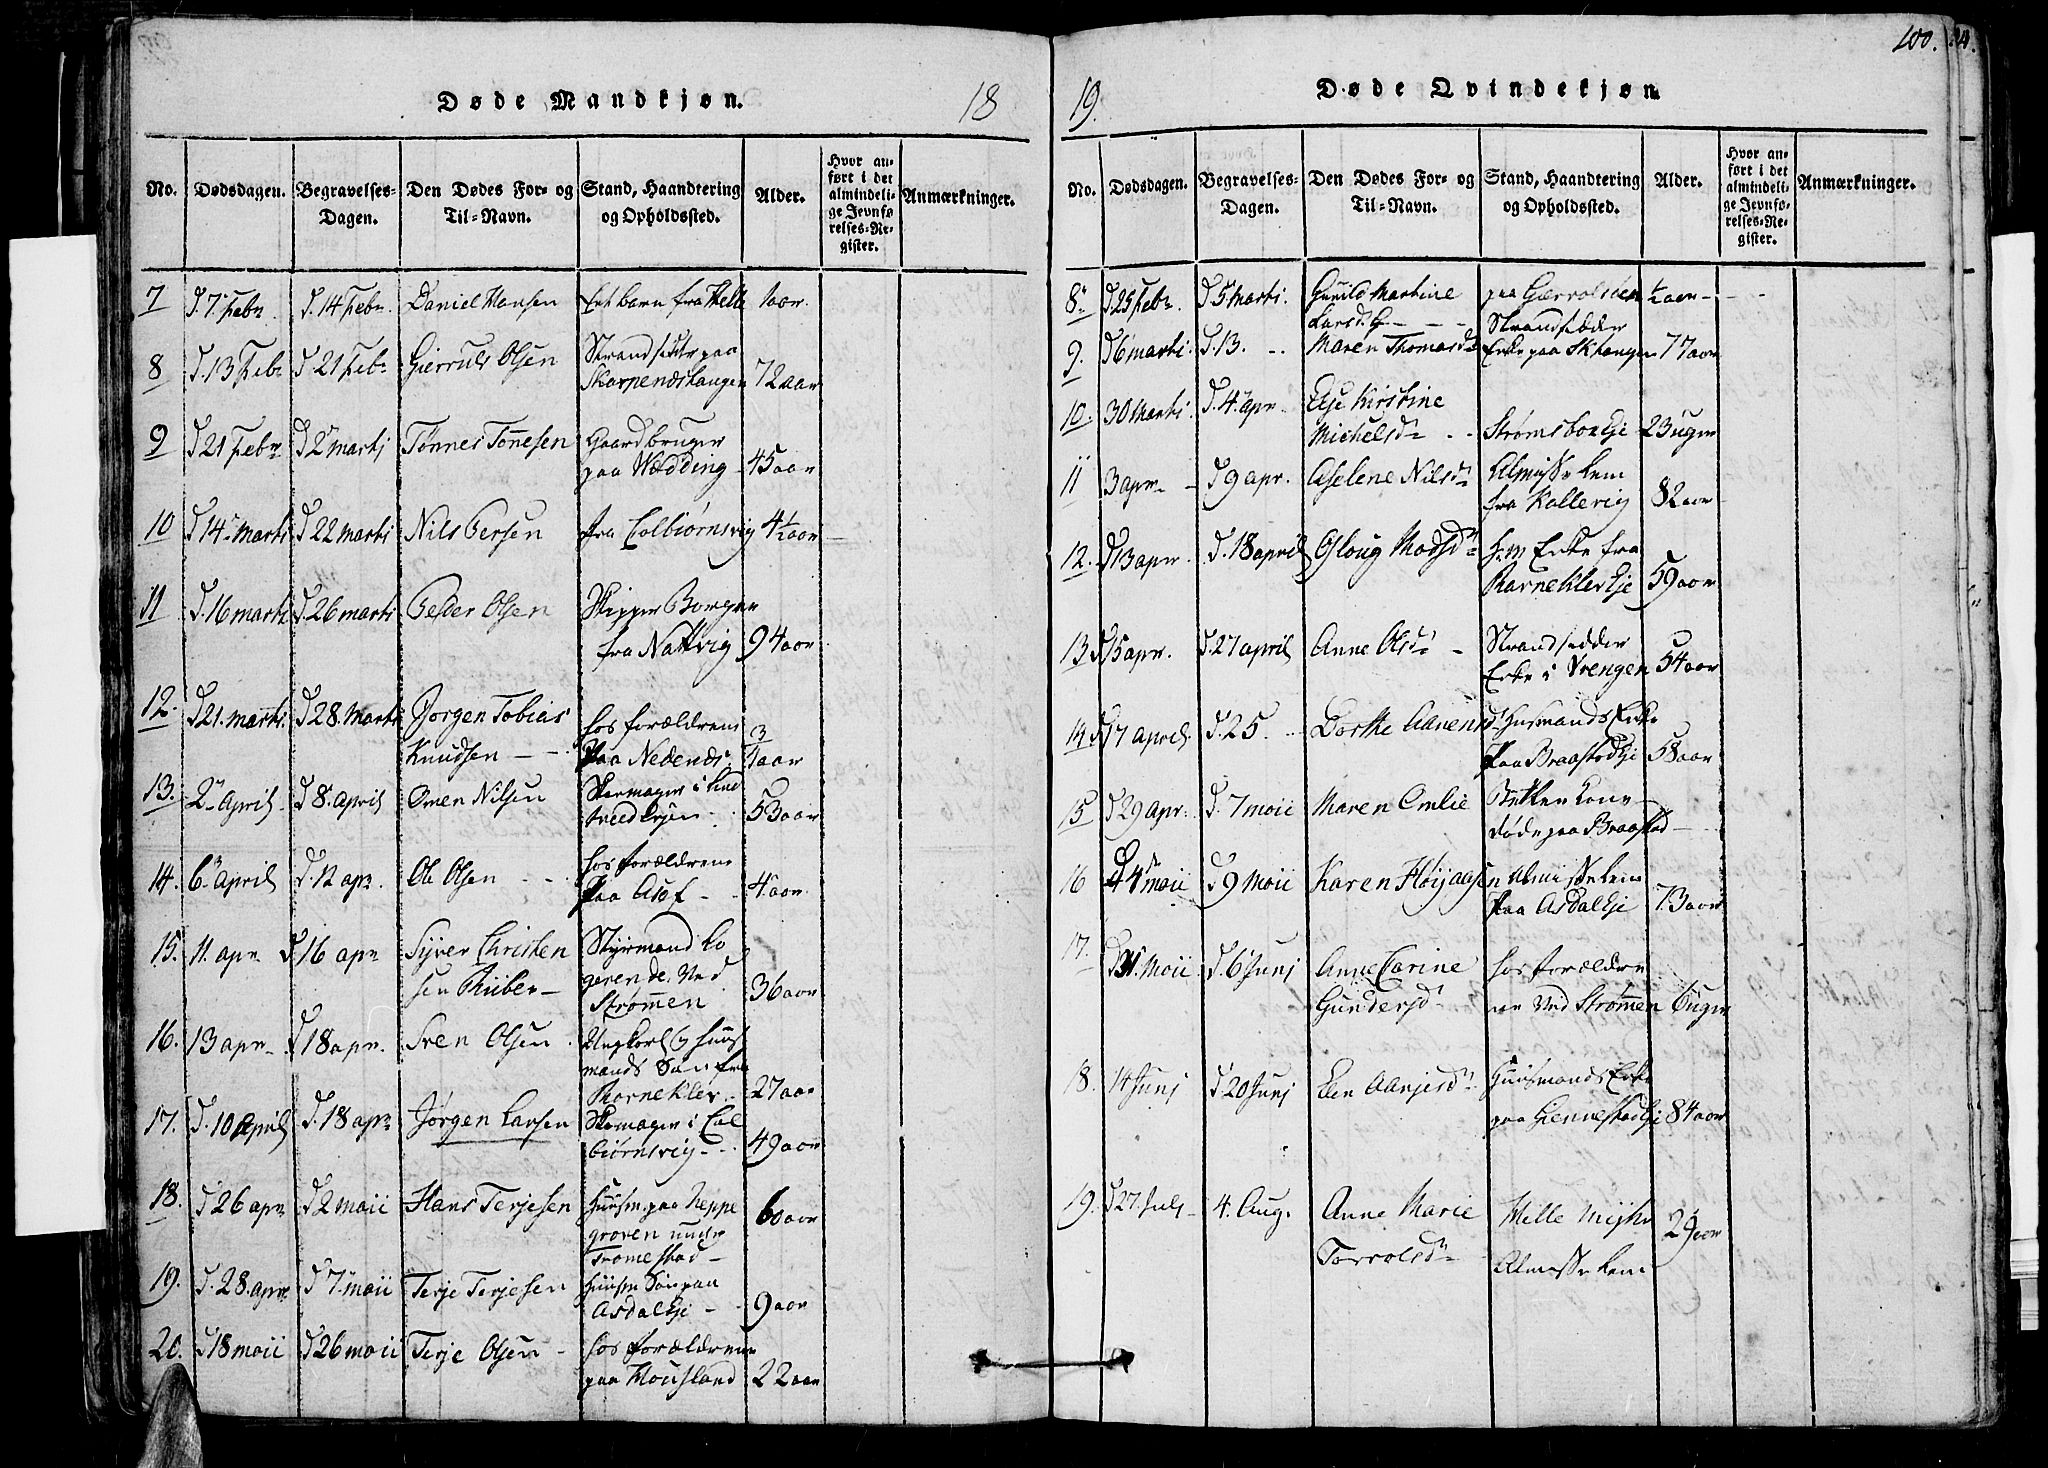 100.
Døde Mandkjøn. 18
No. Dødsdagen. Begravelses-Dagen. Den Dødes For- og Til-Navn. Stand, Haandtering og Opholdssted. Alder. Hvor anført i det almindelige Jevnførelses-Register. Anmærkninger.
7 d. 7 Febr d. 14 Febr Daniel Hansen Et barn fra Helle 1 aar
8 d. 13 Febr d 21 Febr Gierruls Olsen Strandsidder paa
Skarpenæstangen 72 aar
9 d 21 Febr d 2 marti Tønnes Tonesen Gaardbruger
paa Wedding 45 aar
10 d 14 marti d 22 marti Nils Persen fra Colbiørnsvig 4½ aar
11 d. 16 marti d. 26 marti Peder Olsen Skipper Borger
fra Nattvig 94 aar
12. d 21. marti d 28. marti Jørgen Tobias hos forældrene 3
Knudsen paa Nedenes 4 aar
13. 2 April d 8. April Omen Nilsen Skomager i
53 aar
14. 6 April d. 12 apr. Ole Olsen hos forældrene
paa Asdf 4 aar
15. 11. apr d 16 apr Syver Christen Styrmand lo
sen Riiber gerende Ved
Strømmen 36 aar
16. 13 apr d 18 apr. Sven Olsen Ungkarl og Huus
mands Søn fra
Barneklev 27 aar
17. d. 10 April d. 18 apr Jørgen Larsen Skomager i Col
biørnsvig 49 aar
18. d 26 apr d 2 maii Hans Terjesen Huusm. paa Reppe
groven under 60 aar
Tromestad
19. d. 28. apr. d 7. maii Terje Terjesen Huusm Søn paa
Asdal Eje 9 aar
20. d 18 maii d 26 maii Terje Olsen hos forældrene
paa Houfland 22 aar
19. Døde Qvindekjøn
No. Dødsdagen. Begravelses-Dagen. Den Dødes For- og Til-Navn. Stand, Haandtering og Opholdssted. Alder. Hvor anført i det almindelige Jevnførelses-Register. Anmærkninger.
8 d 25 Febr. d 5 Marti. Gunild Martine paa Gierrolsøen ½ aar
Larsd.
9. d 6 marti. d. 13. Maren Thomasd Strandsidder
Enke paa Sktangen 77 aar
10. 30 Marti. d. 4 apr Else Kirstine
Michelsd Strømsboe Eje 23 uger
11 3 apr d 9 apr. Aselene Nilsd Almisse Lem
fra Kallevig 82 aar
12. d 13 apr d. 18 april Asloug Madsd Enke fra
Barneklev Eje 59 aar
13 d 15 apr. d. 27 april Anne Olsd Strandsidder
Enke i Vrengen 54 aar
14 d 17 april d. 25. Dorthe Aanensd Husmands Enke
paa Braastad Eje 58 aar
15 d 29 apr. d. 7 maii Maren Emlie Betler Kone
døde paa Braastad
16 d 4 maii d 9 Maii Karen Høijaasen Almisselem
paa Asdal Eje 73 aar
17. d 31. Maii d. 6 Junj Anne Carine hos forældre
Gundersd ne Ved Strømmen 6 uger
18. 14 Junj d 20 Junj Elen Aanjesd Huusmands Enke
paa Giennestad Eje 84 aar
19. d 27. July 4. Aug. Anne Marie Helle
Torrolsd Almisse Lem 29 aar